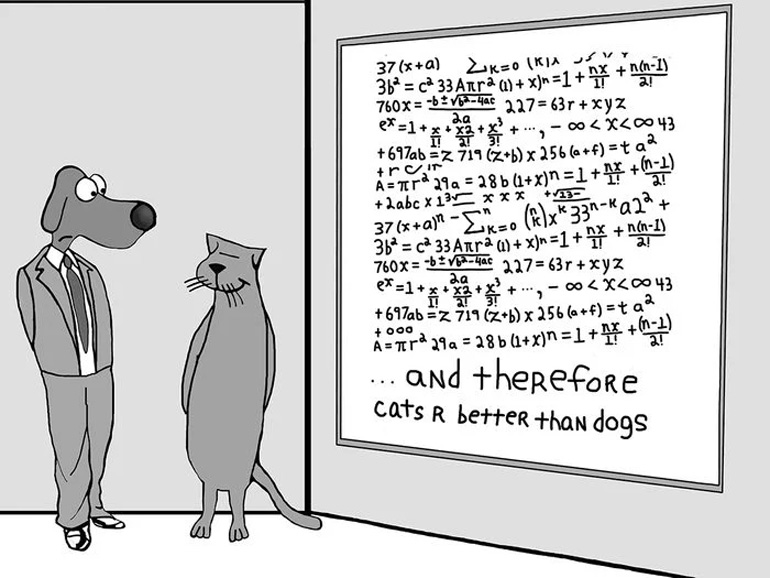 37 (x+a) ∑ K=0
3b² = c² 33 Aπr² (1) + x)ⁿ = 1 + nx/1! + n(n-1)/2!
760x = -b ± √b²-4ac / 2a 227 = 63r + xyz
eˣ = 1 + x/1! + x2/2! + x³/3! + ..., - ∞ < x < ∞ 43
+ 697ab = z 719 (z+b) x 256 (a+f) = t a²
A = πr² 29a = 28b (1+x)ⁿ = 1 + nx/1! + (n-1)/2!
+ 2abc x 13√ x x x + √13-
37 (x+a)ⁿ - ∑ⁿ K=0 (n/K) xᵏ 33ⁿ⁻ᵏ a12 +
3b² = c² 33 Aπr² (1) + x)ⁿ = 1 + nx/1! + n(n-1)/2!
760x = -b ± √b²-4ac / 2a 227 = 63r + xyz
eˣ = 1 + x/1! + x2/2! + x³/3! + ..., - ∞ < x < ∞ 43
+ 697ab = z 719 (z+b) x 256 (a+f) = t a²
+ ooo
A = πr² 29a = 28b (1+x)ⁿ = 1 + nx/1! + (n-1)/2!
... and therefore
cats R better than dogs